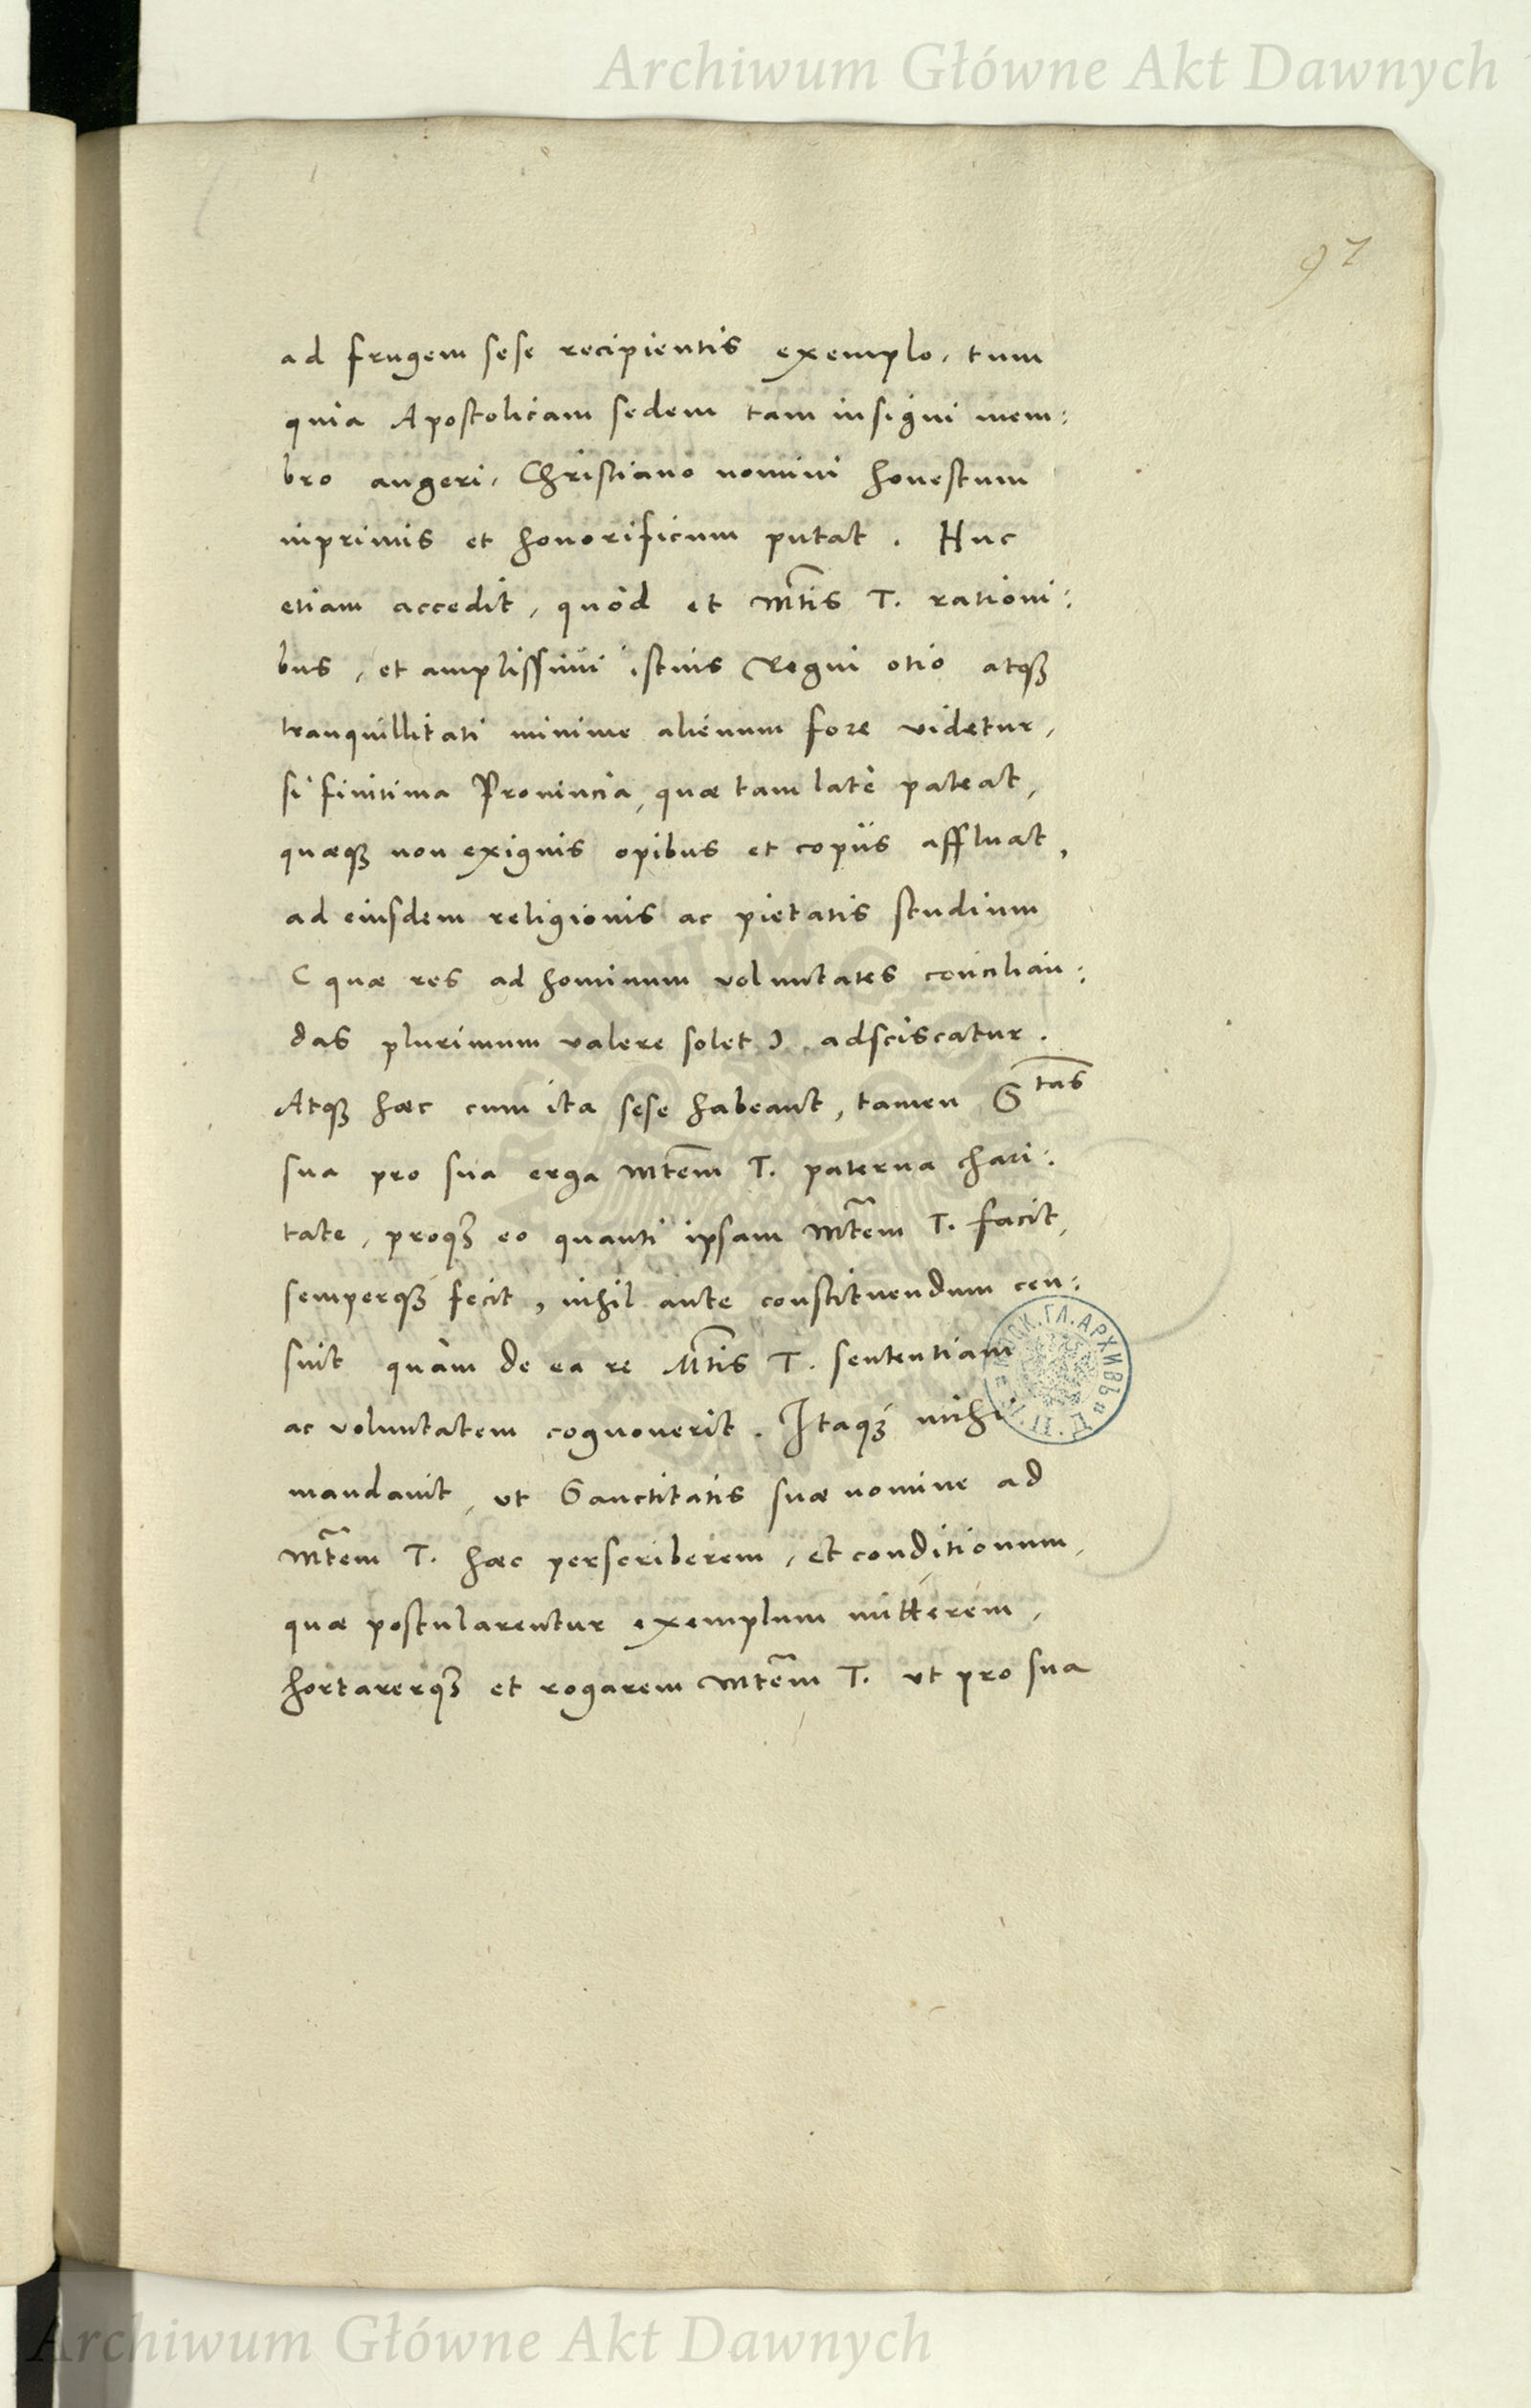 Archiwum Główne Akt Dawnych
97
ad frugem sese recipientis exemplo, tum
quia Apostolicam sedem tam insigni mem:
bro augeri, Christiano nomini honestum
inprimis et honorificum putat. Huc
etiam accedit, quòd et Mtis T. rationi:
bus, et amplissimi istius Regni otio atq3
tranquillitati minime alienum fore videtur,
si finitima Provincia, quæ tam latè pateat,
quæq3 non exiguis opibus et copiis affluat,
ad eiusdem religionis ac pietatis studium
( quæ res ad hominum voluntates concilian:
das plurimum valere solet ) adsciscatur.
Atq3 hæc cum ita sese habeant, tamen Stas
sua pro sua erga Mtem T. paterna chari:
tate, proq3 eo quanti ipsam Mtem T. facit,
semperq3 fecit, nihil ante constituendum cen:
suit quàm de ea re Mtis T. sententiam
ac voluntatem cognoverit. Itaq3 mihi
mandavit, ut Sanctitatis suæ nomine ad
Mtem T. hæc perscriberem, et conditionum,
quæ postularentur exemplum mitterem,
hortarerq3 et rogarem Mtem T. ut pro sua
Archiwum Główne Akt Dawnych